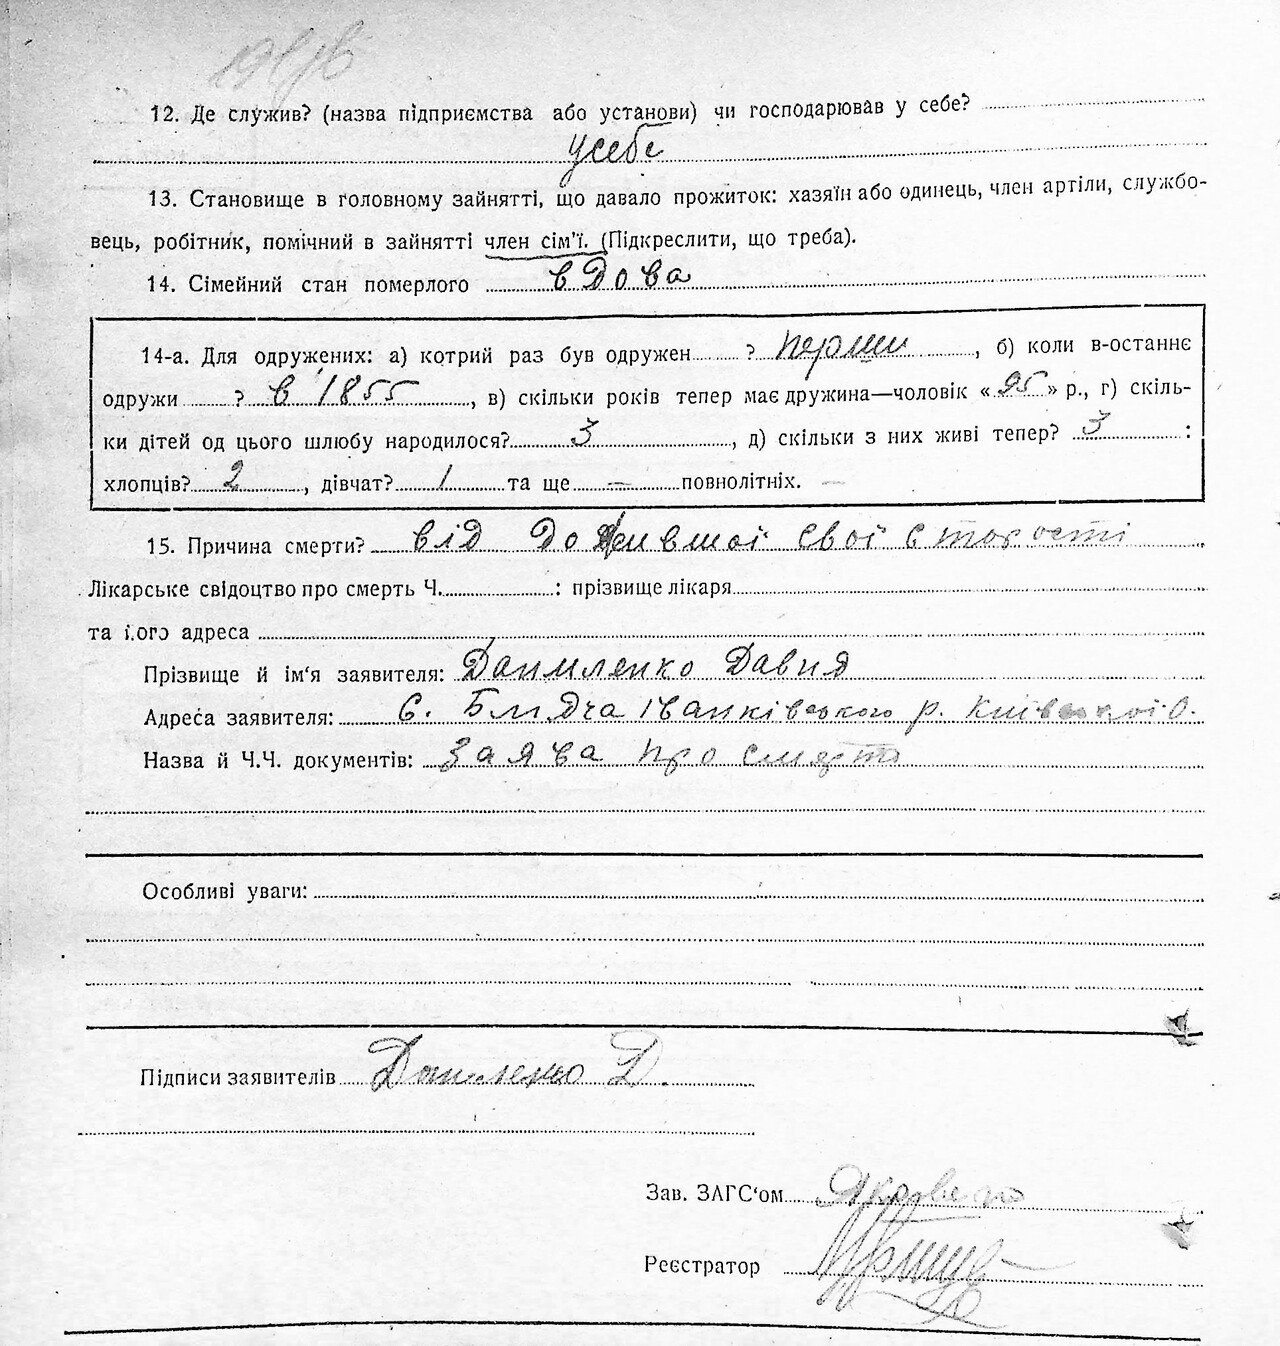 12. Де служив? (назва підприємства або установи) чи господарював у себе?
усебе
13. Становище в головному зайнятті, що давало прожиток: хазяїн або одинець, член артіли, службо-
вець, робітник, помічний в зайнятті член сім'ї. (Підкреслити, що треба).
14. Сімейний стан померлого вдова
14-а. Для одружених: а) котрий раз був одружен ? перший, б) коли в-останнє
одружи ? в 1855, в) скільки років тепер має дружина—чоловік «95» р., г) скіль-
ки дітей од цього шлюбу народилося? 3, д) скільки з них живі тепер? 3 :
хлопців? 2, дівчат? 1 та ще — повнолітніх. —
15. Причина смерти? від дожившої свої старости
Лікарське свідоцтво про смерть Ч. : прізвище лікаря
та його адреса
Прізвище й ім'я заявителя: Даниленко Давид
Адреса заявителя: С. Блидча Іванківського р. Київської О.
Назва й Ч.Ч. документів: Заява про смерть
Особливі уваги:
Підписи заявителів Даниленко Д.
Зав. ЗАГС'ом
Реєстратор